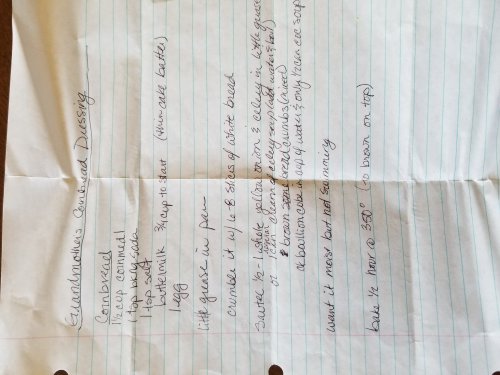 Grandmothers Cornbread Dressing
Cornbread
1 1/2 cup cornmeal
1 tsp bkg soda
1 tsp salt
buttermilk 3/4 cup to start (thin cake batter)
1 egg
little grease in pan
crumble it w/ 6-8 slices of white bread
sautee 1/2 - 1 whole yellow onion & celery in little grease
or 1 can cream of celery soup (add water & boil)
& brown bread crumbs
or boullion cube in cup of water & only 1/2 can cec soup
want it moist but not swimming
bake 1/2 hour @ 350° (so brown on top)